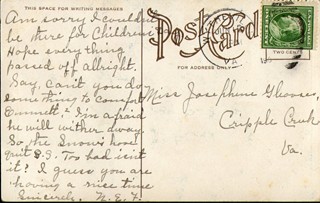 THIS SPACE FOR WRITING MESSAGES
Post Card
FOR ADDRESS ONLY
TWO CENTS
VA
Am sorry I couldn't
be there for Children
Hope everything
passed off allright.
Say, can't you do
something to comfort
Emmett? I'm afraid
he will wither away.
So the Snow's have
quit S.S. Too bad isn't
it? I guess you are
having a nice time
Sincerely,
Miss Josephine
Cripple Creek
Va.